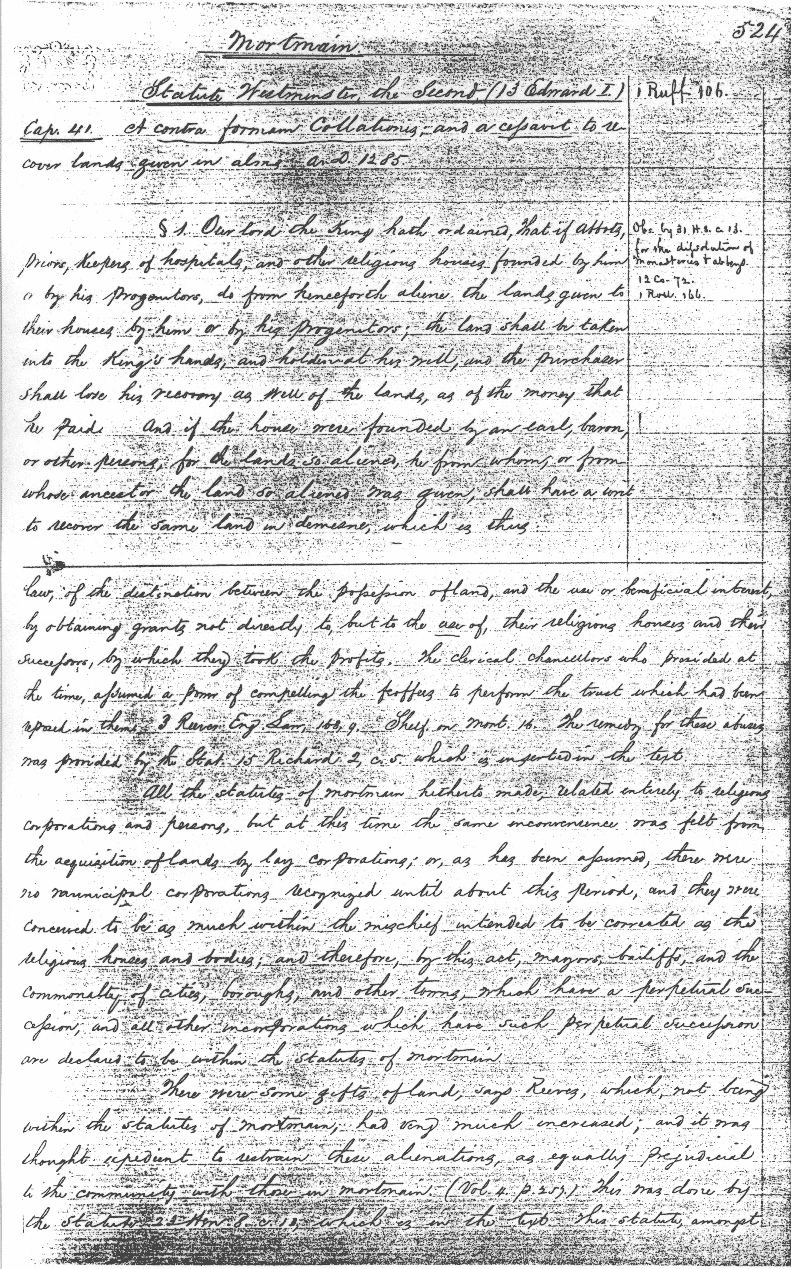 524
Mortmain
Statute Westminster, the Second (13 Edward I.)
1 Ruff 106.
Cap. 41. A contra formam Collationis, and a cessavit to re-
cover lands given in alms. A.D. 1285
§ 1. Our lord the King hath ordained, that if abbots,
priors, keepers of hospitals, and other religious houses founded by him
or by his progenitors, do from henceforth aliene the lands given to
their houses by him or by his progenitors; the land shall be taken
into the King's hands, and holden at his will, and the purchaser
shall lose his recovery as well of the lands, as of the money that
he paid. And if the house were founded by an earl, baron,
or other persons, for the lands so aliened, he from whom, or from
whose ancestor the land so aliened was given, shall have a writ
to recover the same land in demesne, which is thus
Obs. by 31. H. 8. c. 13.
for the dissolution of
monasteries & abbeys.
12 Co. 72.
1 Roll. 166.
law, of the distinction between the possession of land, and the use or beneficial interest,
by obtaining grants not directly to, but to the use of, their religious houses and their
successors, by which they took the profits. The clerical chancellors who presided at
the time, assumed a power of compelling the feoffees to perform the trust which had been
reposed in them. 3 Reeves Eng. Law, 168, 9. Shelf. on Mort. 16. The remedy for these abuses
was provided by the Stat. 15 Richard 2, c. 5. which is inserted in the text.
All the statutes of mortmain hitherto made, related entirely to religious
corporations and persons, but at this time the same inconvenience was felt from
the acquisition of lands by lay corporations; or, as has been assumed, there were
no municipal corporations recognized until about this period, and they were
conceived to be as much within the mischief intended to be corrected as the
religious houses and bodies; and therefore, by this act, mayors, bailiffs, and the
commonalty of cities, boroughs, and other towns, which have a perpetual suc-
cession, and all other incorporations which have such perpetual succession
are declared to be within the statutes of mortmain
There were some gifts of land, says Reeves, which, not being
within the statutes of mortmain, had very much increased; and it was
thought expedient to restrain these alienations, as equally prejudicial
to the community with those in mortmain. (Vol. 4. p. 259.) This was done by
the statute 23 Hen. 8. c. 10, which is in the text. This statute, amongst